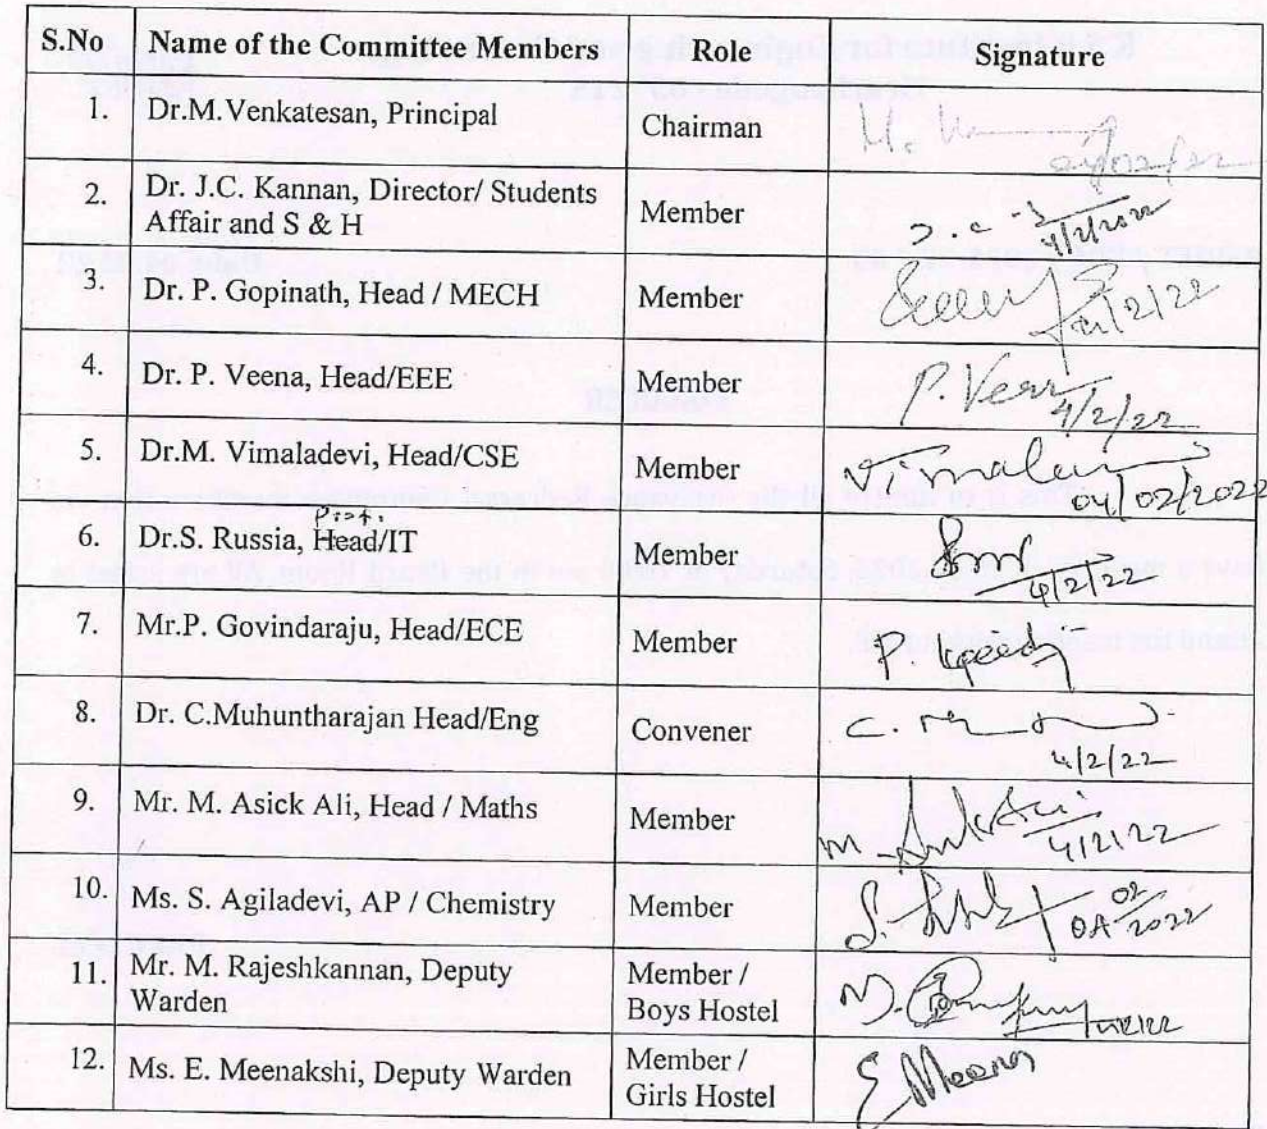 S.No Name of the Committee Members Role Signature
1. Dr.M.Venkatesan, Principal Chairman M.
04/02/22
2. Dr. J.C. Kannan, Director/ Students Affair and S & H Member J.C
4/2/2022
3. Dr. P. Gopinath, Head / MECH Member
4/2/22
4. Dr. P. Veena, Head/EEE Member P. Veena
4/2/22
5. Dr.M. Vimaladevi, Head/CSE Member
04/02/2022
Prof.
6. Dr.S. Russia, Head/IT Member
4/2/22
7. Mr.P. Govindaraju, Head/ECE Member P.
8. Dr. C.Muhuntharajan Head/Eng Convener C.
4/2/22
9. Mr. M. Asick Ali, Head / Maths Member M.
4/2/22
10. Ms. S. Agiladevi, AP / Chemistry Member S.
04 02 2022
11. Mr. M. Rajeshkannan, Deputy Warden Member / Boys Hostel M.
12. Ms. E. Meenakshi, Deputy Warden Member / Girls Hostel E Meena